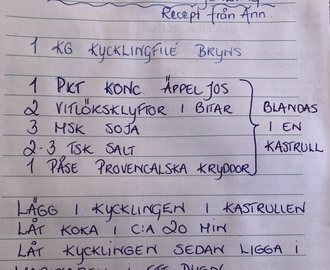 Recept från Ann.
1 KG KYCKLINGFILÉ BRYNS
1 PKT KONC ÄPPELJOS
2 VITLÖKSKLYFTOR I BITAR
3 MSK SOJA
2-3 TSK SALT
1 PÅSE PROVENCALSKA KRYDDOR
BLANDAS
I EN
KASTRULL
LÄGG I KYCKLINGEN I KASTRULLEN
LÅT KOKA I C:A 20 MIN
LÅT KYCKLINGEN SEDAN LIGGA I